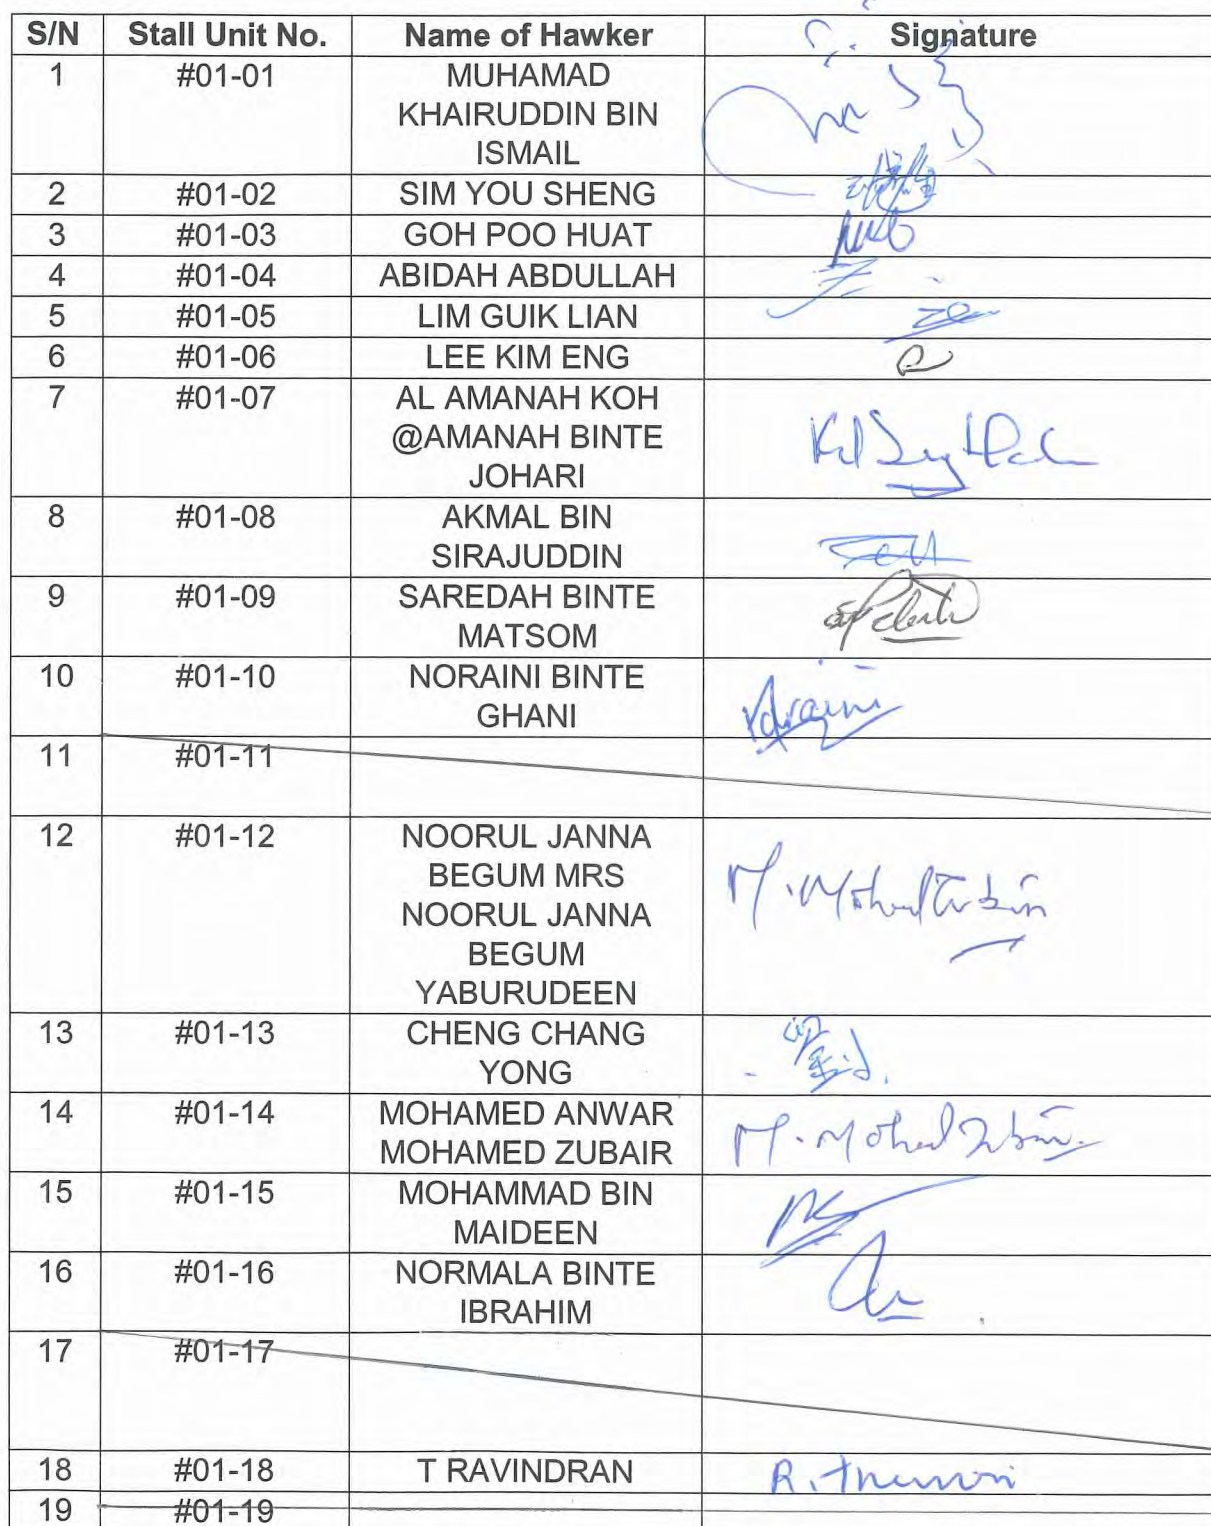 S/N Stall Unit No. Name of Hawker Signature
1 #01-01 MUHAMAD
KHAIRUDDIN BIN
ISMAIL
2 #01-02 SIM YOU SHENG
3 #01-03 GOH POO HUAT
4 #01-04 ABIDAH ABDULLAH
5 #01-05 LIM GUIK LIAN
6 #01-06 LEE KIM ENG
7 #01-07 AL AMANAH KOH
@AMANAH BINTE
JOHARI
8 #01-08 AKMAL BIN
SIRAJUDDIN
9 #01-09 SAREDAH BINTE
MATSOM
10 #01-10 NORAINI BINTE
GHANI
11 #01-11
12 #01-12 NOORUL JANNA
BEGUM MRS
NOORUL JANNA
BEGUM
YABURUDEEN
13 #01-13 CHENG CHANG
YONG
14 #01-14 MOHAMED ANWAR
MOHAMED ZUBAIR
15 #01-15 MOHAMMAD BIN
MAIDEEN
16 #01-16 NORMALA BINTE
IBRAHIM
17 #01-17
18 #01-18 T RAVINDRAN
19 #01-19